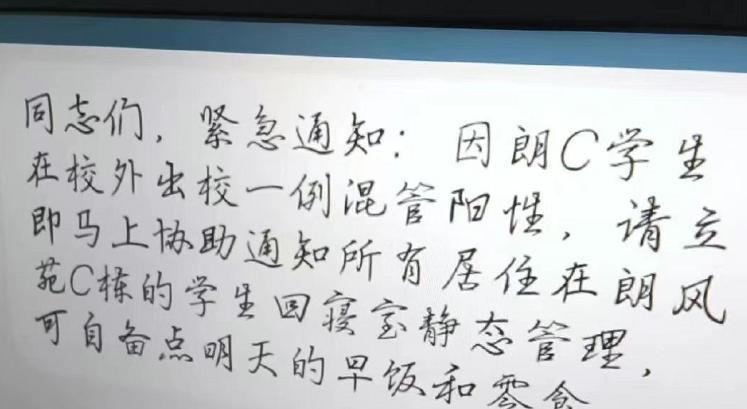 同志们，紧急通知：因朗C学生
在校外出校一例混管阳性，请立
即马上协助通知所有居住在朗风
苑C栋的学生回寝室静态管理，
可自备点明天的早饭和零食